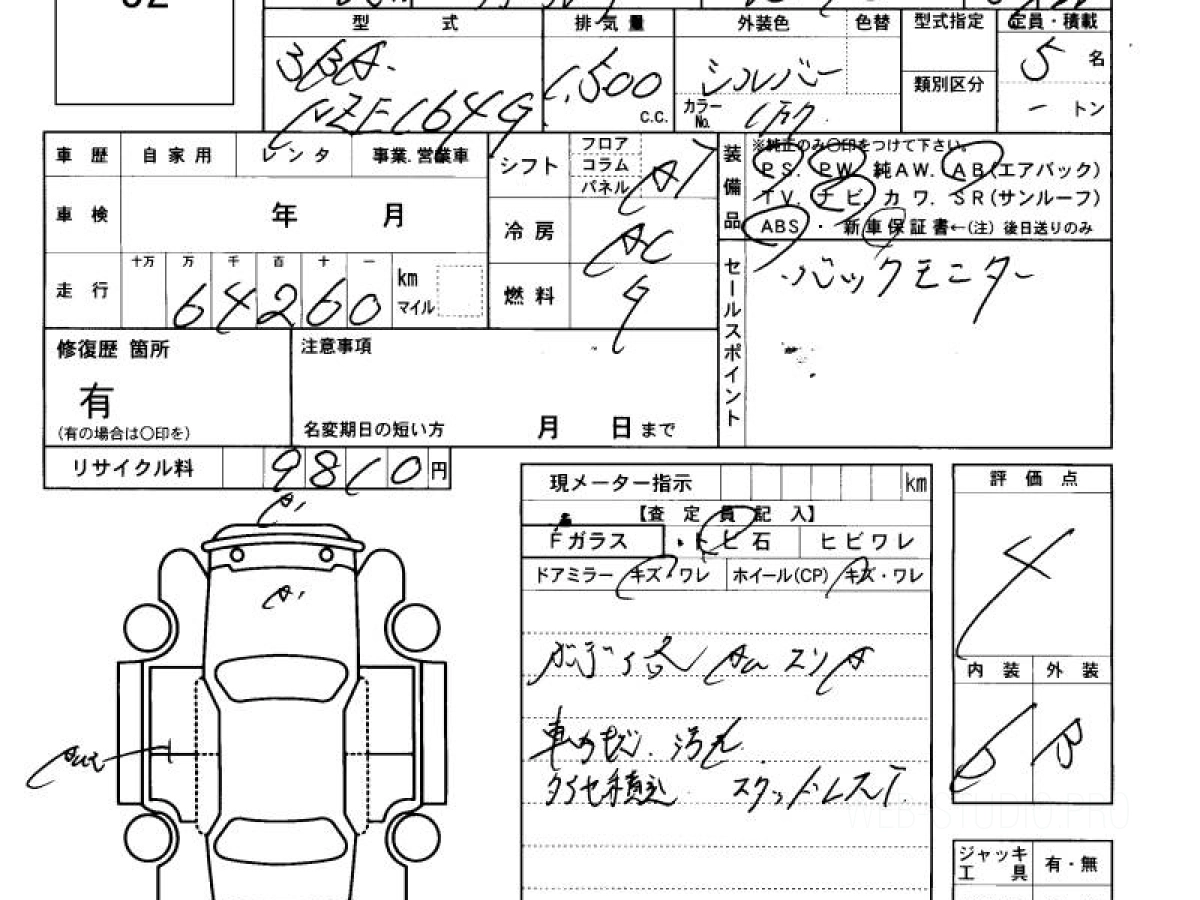 型 式 排気量 外装色 色替 型式指定 定員・積載
3BA-
NZE164G
1,500 c.c.
シルバー
カラーNo. 1F7
類別区分
5 名
ー トン
車歴 自家用 レンタ 事業.営業車
シフト フロア コラム パネル AT
装備品 ※純正のみ〇印をつけて下さい。
PS. PW. 純AW. AB(エアバック)
TV. ナビ. カワ. SR(サンルーフ)
ABS ・ 新車保証書←(注) 後日送りのみ
車検 年 月
冷房 AC
走行 十万 万 千 百 十 一
64260 km マイル
燃料 G
セールスポイント バックモニター
修復歴 箇所
有
(有の場合は〇印を)
注意事項
名変期日の短い方 月 日 まで
リサイクル料 9810 円
現メーター指示 km
評価点
4
【査定員記入】
Fガラス ・トビ石 ヒビワレ
ドアミラー キズ・ワレ ホイール(CP) キズ・ワレ
A1
A1
スリA
内装 外装
B B
車内キズ. 汚れ
タイヤ積込 スタッドレスT
ジャッキ
工具
有・無
WEB-STUDIO.PRO